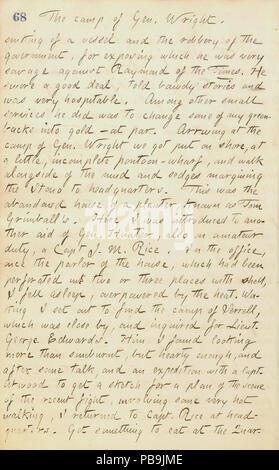 68
The camp of Gen. Wright.
sinking of a vessel and the robbery of the
government, for exposing which he was very
savage against Raymond of the Times. He
swore a good deal, told bawdy stories and
was very hospitable. Among other small
services he did was to change some of my green-
backs into gold — at par. Arriving at the
camp of Gen. Wright we got put on shore, at
a little, incomplete pontoon-wharf, and walk
alongside of the mud and sedges margining
the Stono to headquarters. This was the
abandoned house of a planter, known as Tom
Grimball's. Here I was introduced to ano-
ther aid of Gen. Hunter, also on amateur
duty, a Capt J. M. Rice. In the office,
once the parlor of the house, which had been
perforated in two or three places with shot,
I fell asleep, overpowered by the heat. Wa-
king I set out to find the camp of
which was close by, and inquired for Lieut.
George Edwards. Him I found looking
more than sunburnt, but hearty enough, and
after some talk and an expedition with a Capt.
Atwood to get a sketch for a plan of the scene
of the recent fight, involving some very hot
walking, I returned to Capt. Rice at head-
quarters. Got something to eat at the Quar-
alamy
Image ID: PB9JME
www.alamy.com